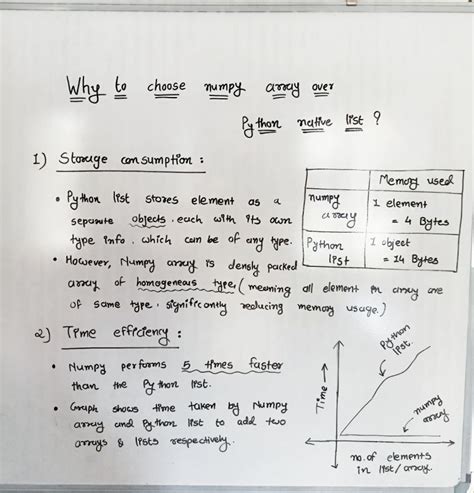 Why to choose numpy array over
Python native list ?
1) Storage consumption :
• Python list stores element as a
separate objects. each with its own
type info. which can be of any type.
• However, Numpy array is densly packed
array of homogeneous type. ( meaning all element in array are
of same type. significantly reducing memory usage. )
Memory used
numpy array
1 element
= 4 Bytes
Python list
1 object
= 14 Bytes
2) Time efficiency :
• Numpy performs 5 times faster
than the Python list.
• Graph shows time taken by Numpy
array and Python list to add two
arrays & lists respectively.
Time
Python
list.
numpy
array
no. of elements
in list/array.